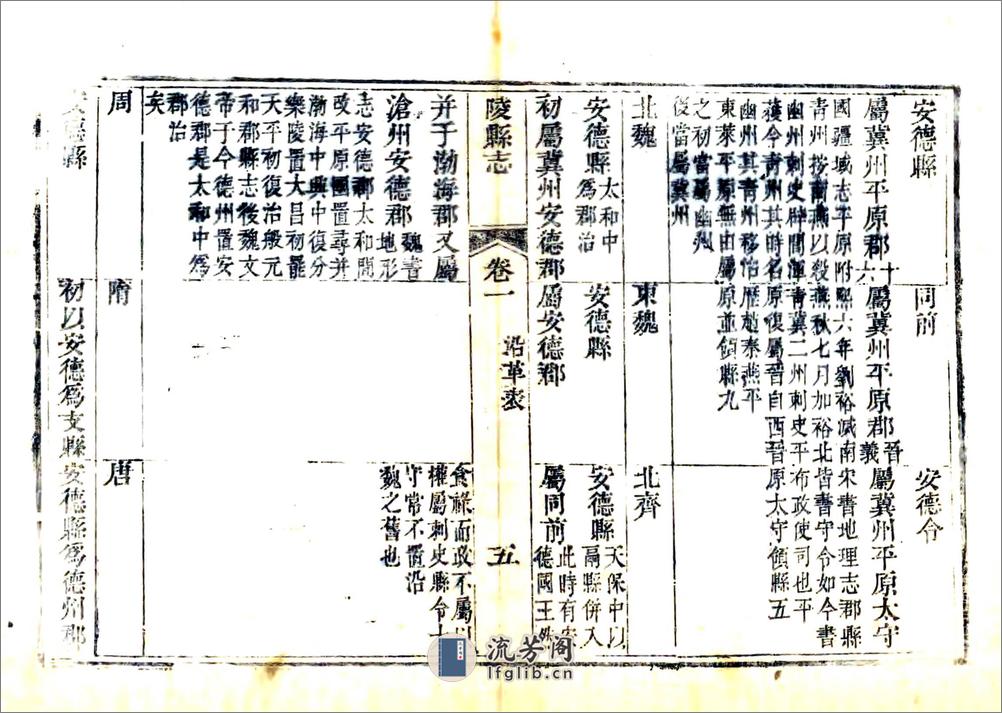 安德縣
屬冀州平原郡十六
國疆域志平原附
青州按南燕以殺
幽州刺史辟閭渾
獲今青州其時名
幽州其青州移治
東萊平原無由屬
之初當屬幽州
後當屬冀州
同前
屬冀州平原郡晉義
熙六年劉裕滅南
燕秋七月加裕北
青冀二州刺史平
原復屬晉自西晉
歷趙秦燕平
原並領縣九
安德令
屬冀州平原太守
宋書地理志郡縣
皆書守令如今書
布政使司也平
原太守領縣五
北魏
安德縣太和中
爲郡治
初屬冀州安德郡
東魏
安德縣
屬安德郡
北齊
安德縣天保中以
鬲縣併入
屬同前此時有安
德國王
陵縣志
卷一
沿革表
五
并于渤海郡又屬
滄州安德郡魏書
地形
志安德郡太和間
改平原國置尋并
渤海中興中復分
樂陵置大昌初罷
天平初復治般元
和郡縣志後魏文
帝于今德州置安
德郡是太和中爲
郡治
矣
食祿而政不屬以
權屬刺史縣令
守常不置沿
魏之舊也
周
隋
唐
安德縣
初以安德爲支縣
安德縣爲德州郡
流芳阁
lfglib.cn